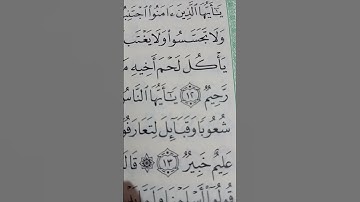 يَـٰٓأَيُّهَا ٱلَّذِينَ ءَامَنُوا۟ ٱجْتَنِبُ
وَلَا تَجَسَّسُوا۟ وَلَا يَغْتَب
يَأْكُلَ لَحْمَ أَخِيهِ
رَّحِيمٌ ١٢ يَـٰٓأَيُّهَا ٱلنَّاسُ
شُعُوبًا وَقَبَآئِلَ لِتَعَارَفُ
عَلِيمٌ خَبِيرٌ ١٣ ۞ قَالَ